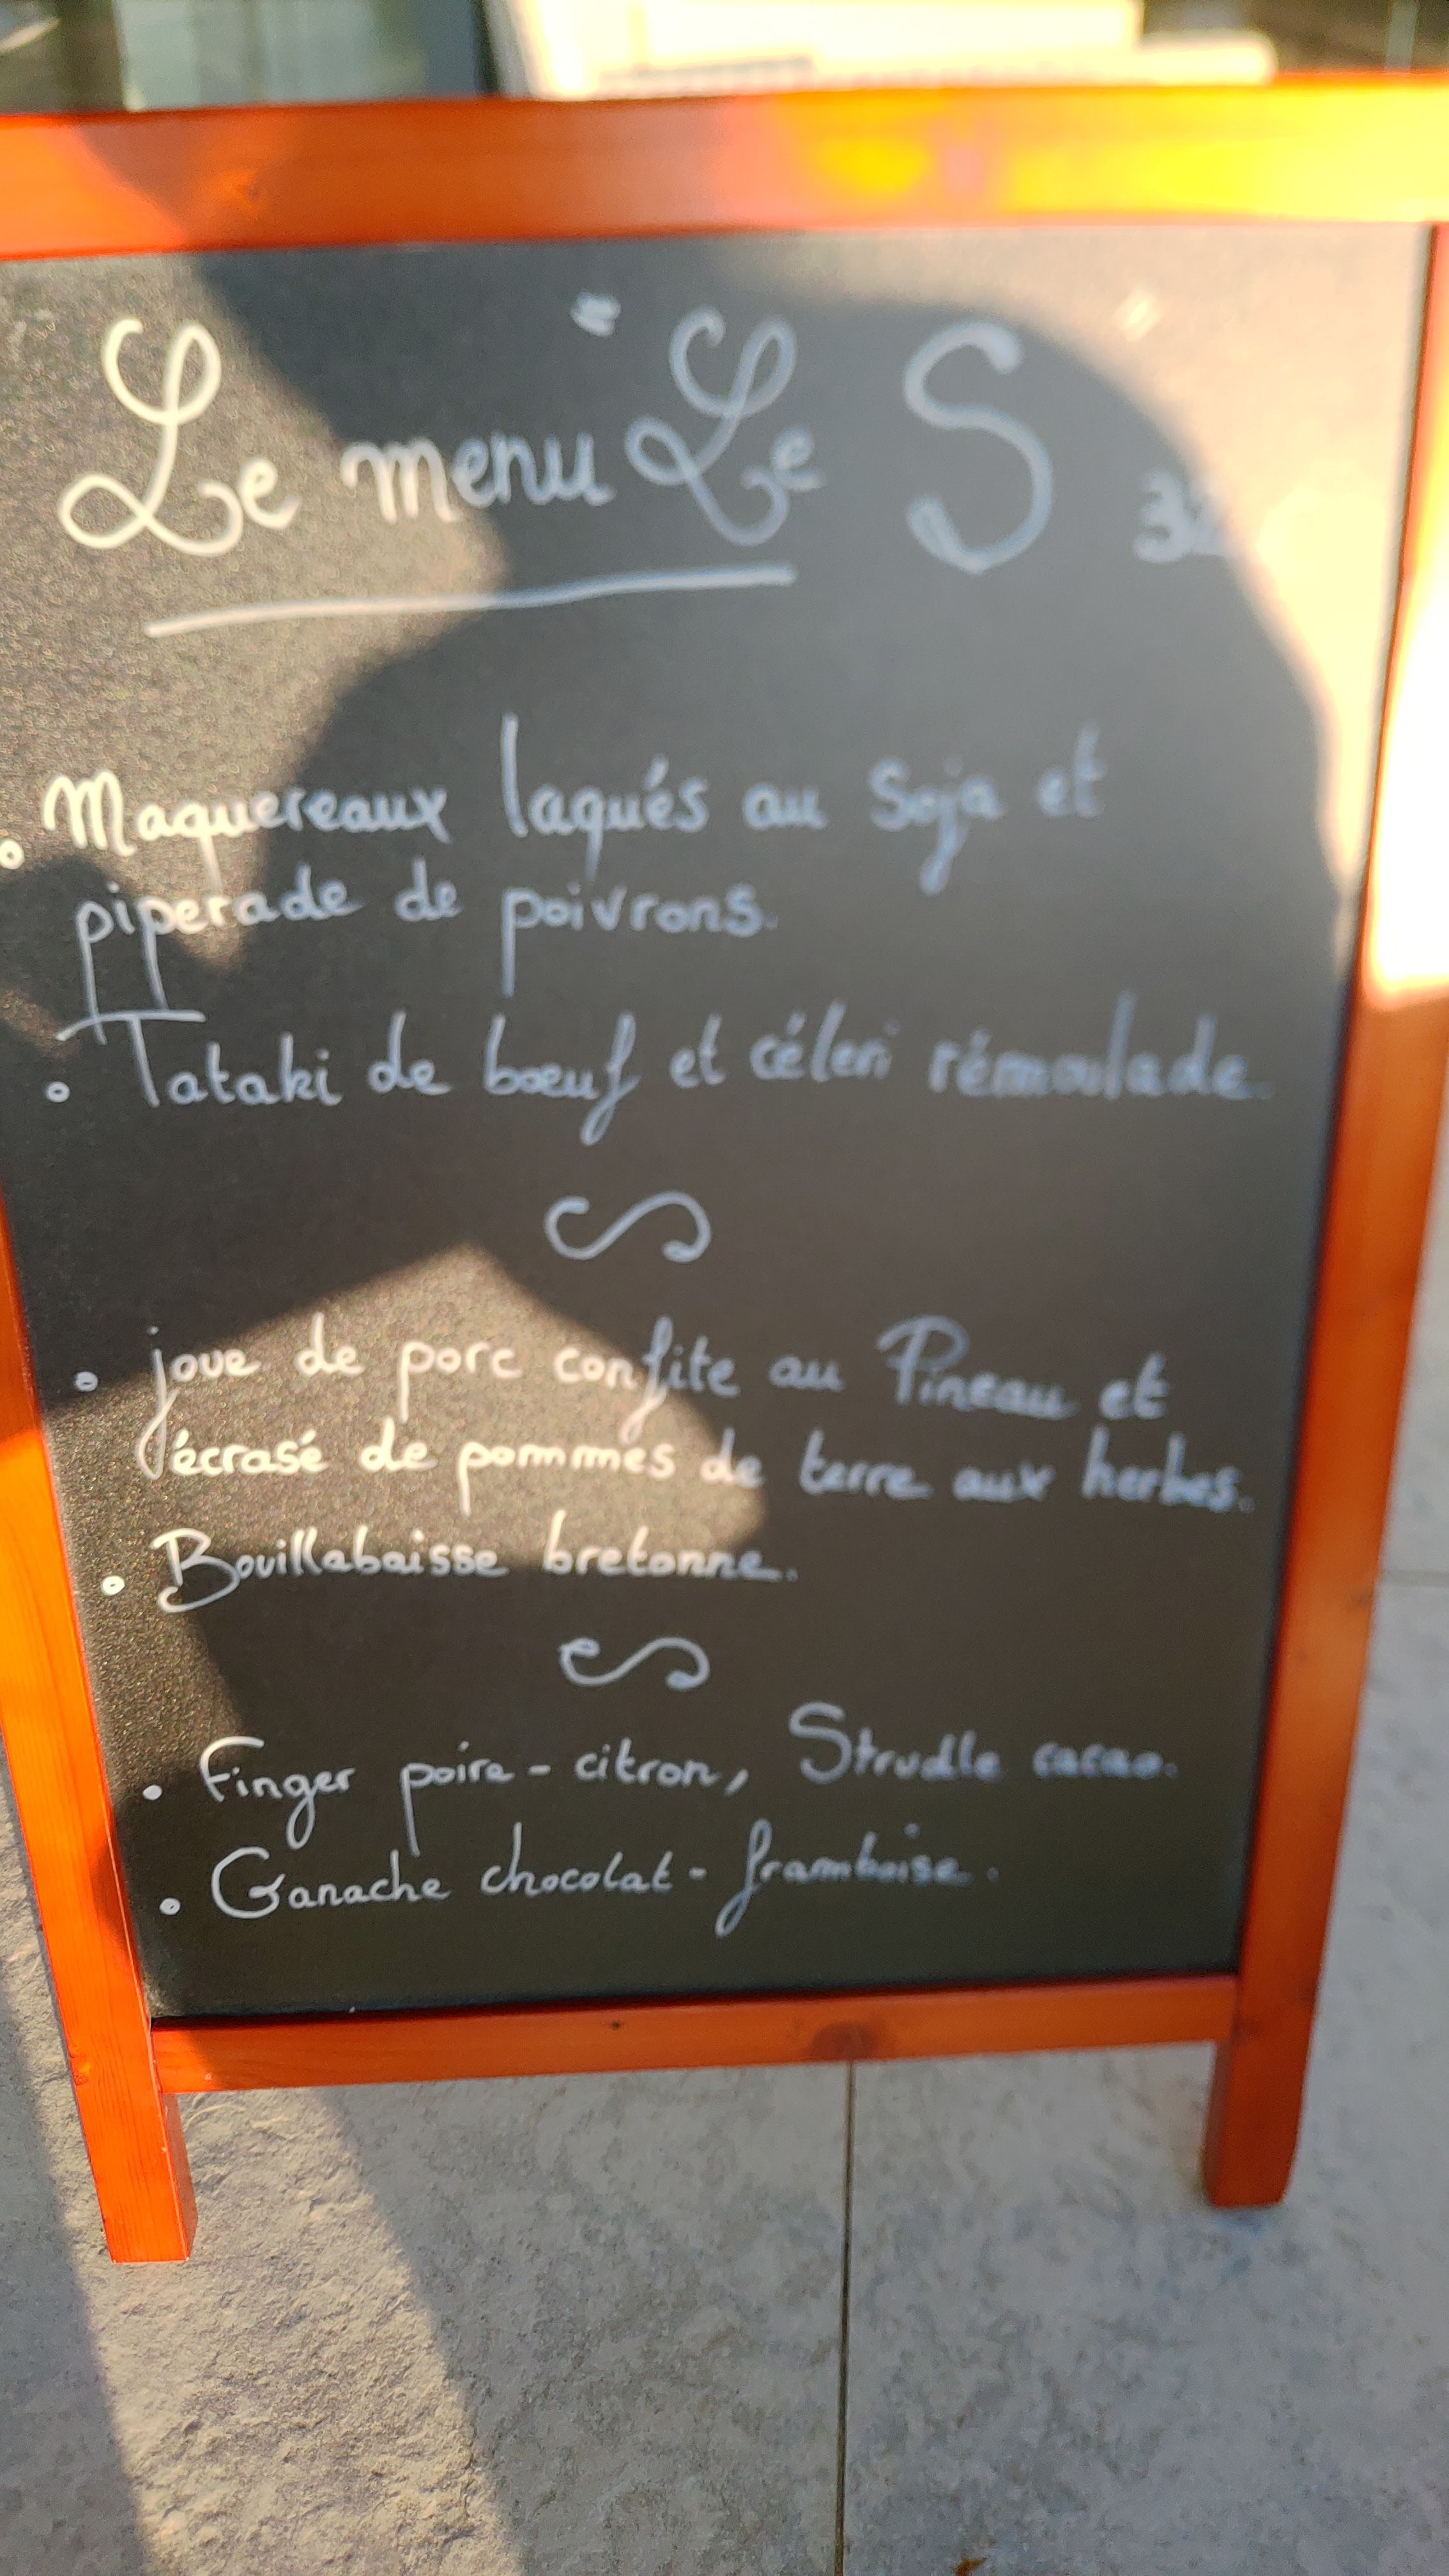 Le menu "Le S" 32
Maquereaux laqués au Soja et
piperade de poivrons.
Tataki de bœuf et céleri rémoulade.
joue de porc confite au Pineau et
écrasé de pommes de terre aux herbes.
Bouillabaisse bretonne.
Finger poire - citron, Strudle cacao.
Ganache chocolat - framboise.